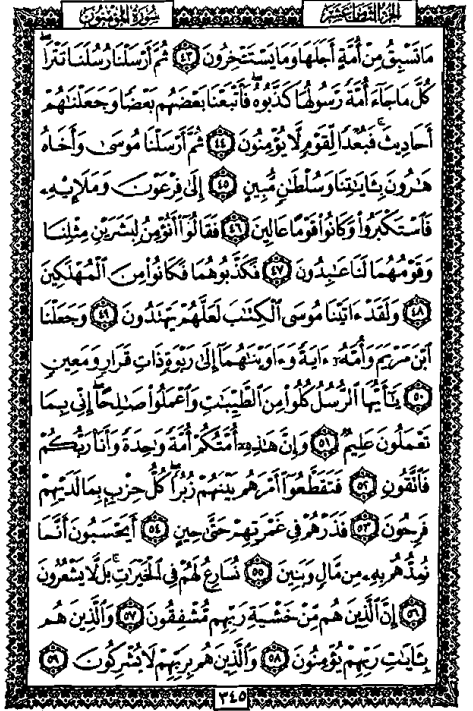 الجزء الثامن عشر سورة المؤمنون
مَا تَسْبِقُ مِنْ أُمَّةٍ أَجَلَهَا وَمَا يَسْتَـْٔخِرُونَ ٤٣ ثُمَّ أَرْسَلْنَا رُسُلَنَا تَتْرَا
كُلَّ مَا جَآءَ أُمَّةً رَّسُولُهَا كَذَّبُوهُ فَأَتْبَعْنَا بَعْضَهُم بَعْضًا وَجَعَلْنَٰهُمْ
أَحَادِيثَ فَبُعْدًا لِّقَوْمٍ لَّا يُؤْمِنُونَ ٤٤ ثُمَّ أَرْسَلْنَا مُوسَىٰ وَأَخَاهُ
هَٰرُونَ بِـَٔايَٰتِنَا وَسُلْطَٰنٍ مُّبِينٍ ٤٥ إِلَىٰ فِرْعَوْنَ وَمَلَإِي۟هِۦ
فَٱسْتَكْبَرُوا۟ وَكَانُوا۟ قَوْمًا عَالِينَ ٤٦ فَقَالُوٓا۟ أَنُؤْمِنُ لِبَشَرَيْنِ مِثْلِنَا
وَقَوْمُهُمَا لَنَا عَٰبِدُونَ ٤٧ فَكَذَّبُوهُمَا فَكَانُوا۟ مِنَ ٱلْمُهْلَكِينَ
٤٨ وَلَقَدْ ءَاتَيْنَا مُوسَى ٱلْكِتَٰبَ لَعَلَّهُمْ يَهْتَدُونَ ٤٩ وَجَعَلْنَا
ٱبْنَ مَرْيَمَ وَأُمَّهُۥٓ ءَايَةً وَءَاوَيْنَٰهُمَآ إِلَىٰ رَبْوَةٍ ذَاتِ قَرَارٍ وَمَعِينٍ
٥٠ يَٰٓأَيُّهَا ٱلرُّسُلُ كُلُوا۟ مِنَ ٱلطَّيِّبَٰتِ وَٱعْمَلُوا۟ صَٰلِحًا إِنِّى بِمَا
تَعْمَلُونَ عَلِيمٌ ٥١ وَإِنَّ هَٰذِهِۦٓ أُمَّتُكُمْ أُمَّةً وَٰحِدَةً وَأَنَا۠ رَبُّكُمْ
فَٱتَّقُونِ ٥٢ فَتَقَطَّعُوٓا۟ أَمْرَهُم بَيْنَهُمْ زُبُرًا كُلُّ حِزْبٍۭ بِمَا لَدَيْهِمْ
فَرِحُونَ ٥٣ فَذَرْهُمْ فِى غَمْرَتِهِمْ حَتَّىٰ حِينٍ ٥٤ أَيَحْسَبُونَ أَنَّمَا
نُمِدُّهُم بِهِۦ مِن مَّالٍ وَبَنِينَ ٥٥ نُسَارِعُ لَهُمْ فِى ٱلْخَيْرَٰتِ بَل لَّا يَشْعُرُونَ
٥٦ إِنَّ ٱلَّذِينَ هُم مِّنْ خَشْيَةِ رَبِّهِم مُّشْفِقُونَ ٥٧ وَٱلَّذِينَ هُم
بِـَٔايَٰتِ رَبِّهِمْ يُؤْمِنُونَ ٥٨ وَٱلَّذِينَ هُم بِرَبِّهِمْ لَا يُشْرِكُونَ ٥٩
٣٤٥